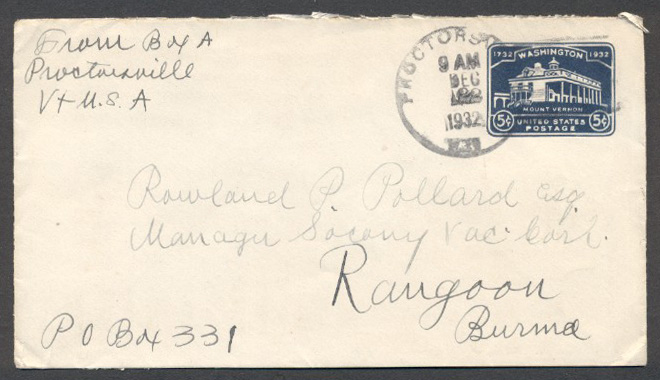 From Box A
Proctorsville
Vt U.S.A
PROCTORS
9 AM
DEC
1932
1732 WASHINGTON 1932
MOUNT VERNON
5¢ UNITED STATES 5¢
POSTAGE
Rowland P. Pollard Esq
Manager Socony Vac. Corp.
Rangoon
Burma
P O Box 331